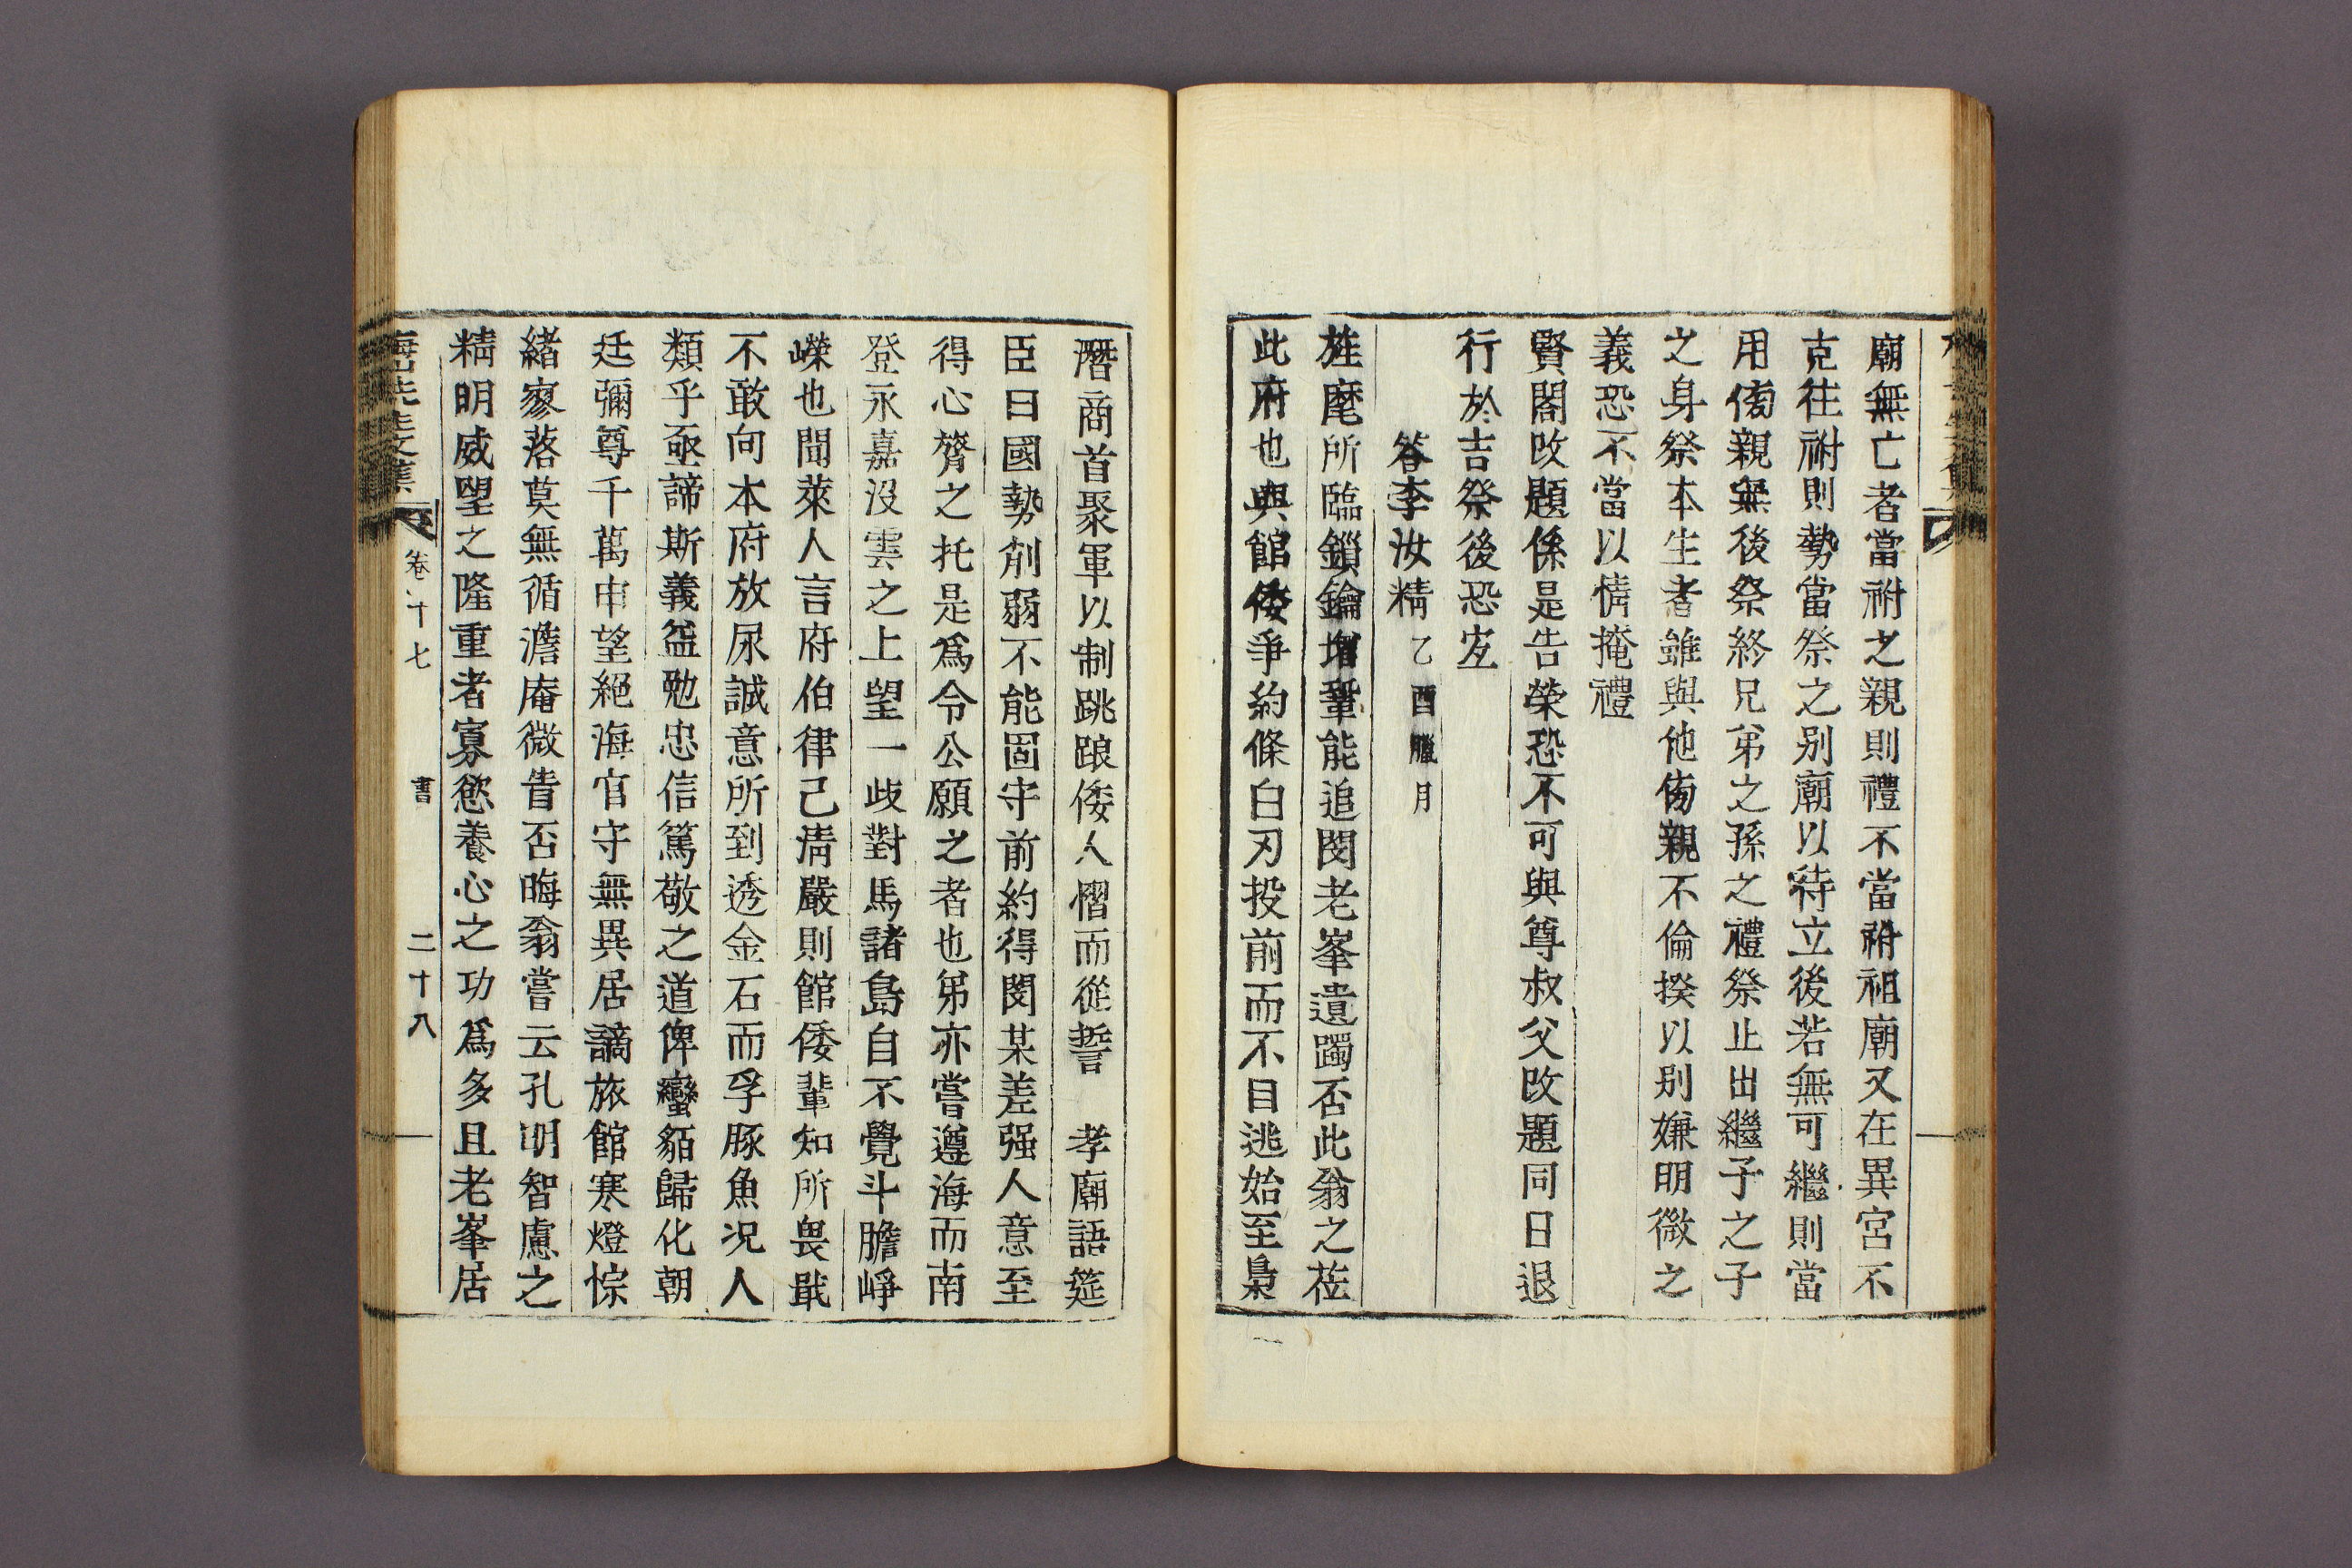 廟無亡者當祔之親則禮不當祔祖廟又在異宮不
克往祔則勢當祭之別廟以待立後若無可繼則當
用傍親無後祭終兄弟之孫之禮祭止出繼子之子
之身祭本生者雖與他傍親不倫揆以別嫌明微之
義恐不當以情掩禮
賢閤改題係是告榮恐不可與尊叔父改題同日退
行於吉祭後恐宐
答李汝精 乙酉臘月
旌麾所臨鎖鑰增鞏能追閔老峯遺躅否此翁之莅
此府也與館倭爭約條白刃投前而不目逃始至梟
潛商首聚軍以制跳踉倭人慴而從誓 孝廟語筵
臣曰國勢削弱不能固守前約得閔某差强人意至
得心膂之托是爲令公願之者也弟亦嘗遵海而南
登永嘉沒雲之上望一歧對馬諸島自不覺斗膽崢
嶸也聞萊人言府伯律己淸嚴則館倭輩知所畏戢
不敢向本府放尿誠意所到透金石而孚豚魚况人
類乎亟諦斯義益勉忠信篤敬之道俾蠻貊歸化朝
廷彌尊千萬申望絕海官守無異居謫旅館寒燈悰
緒寥落莫無循澹庵微眚否晦翁嘗云孔明智慮之
精明威望之隆重者寡慾養心之功爲多且老峯居
卷十七 書 二十八